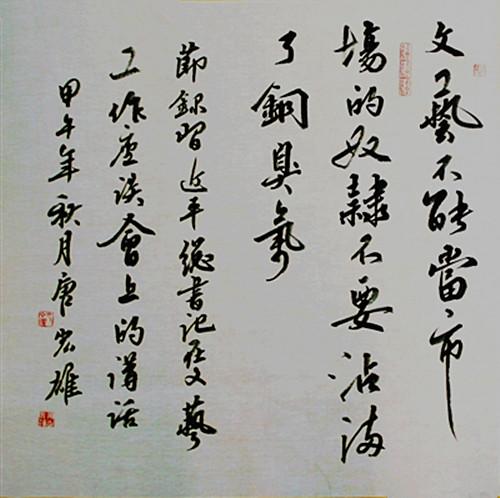 文艺不能當市
場的奴隸不要沾满
了銅臭氣
節録習近平総書记在文藝
工作座谈會上的講话
甲午年秋月唐宏雄